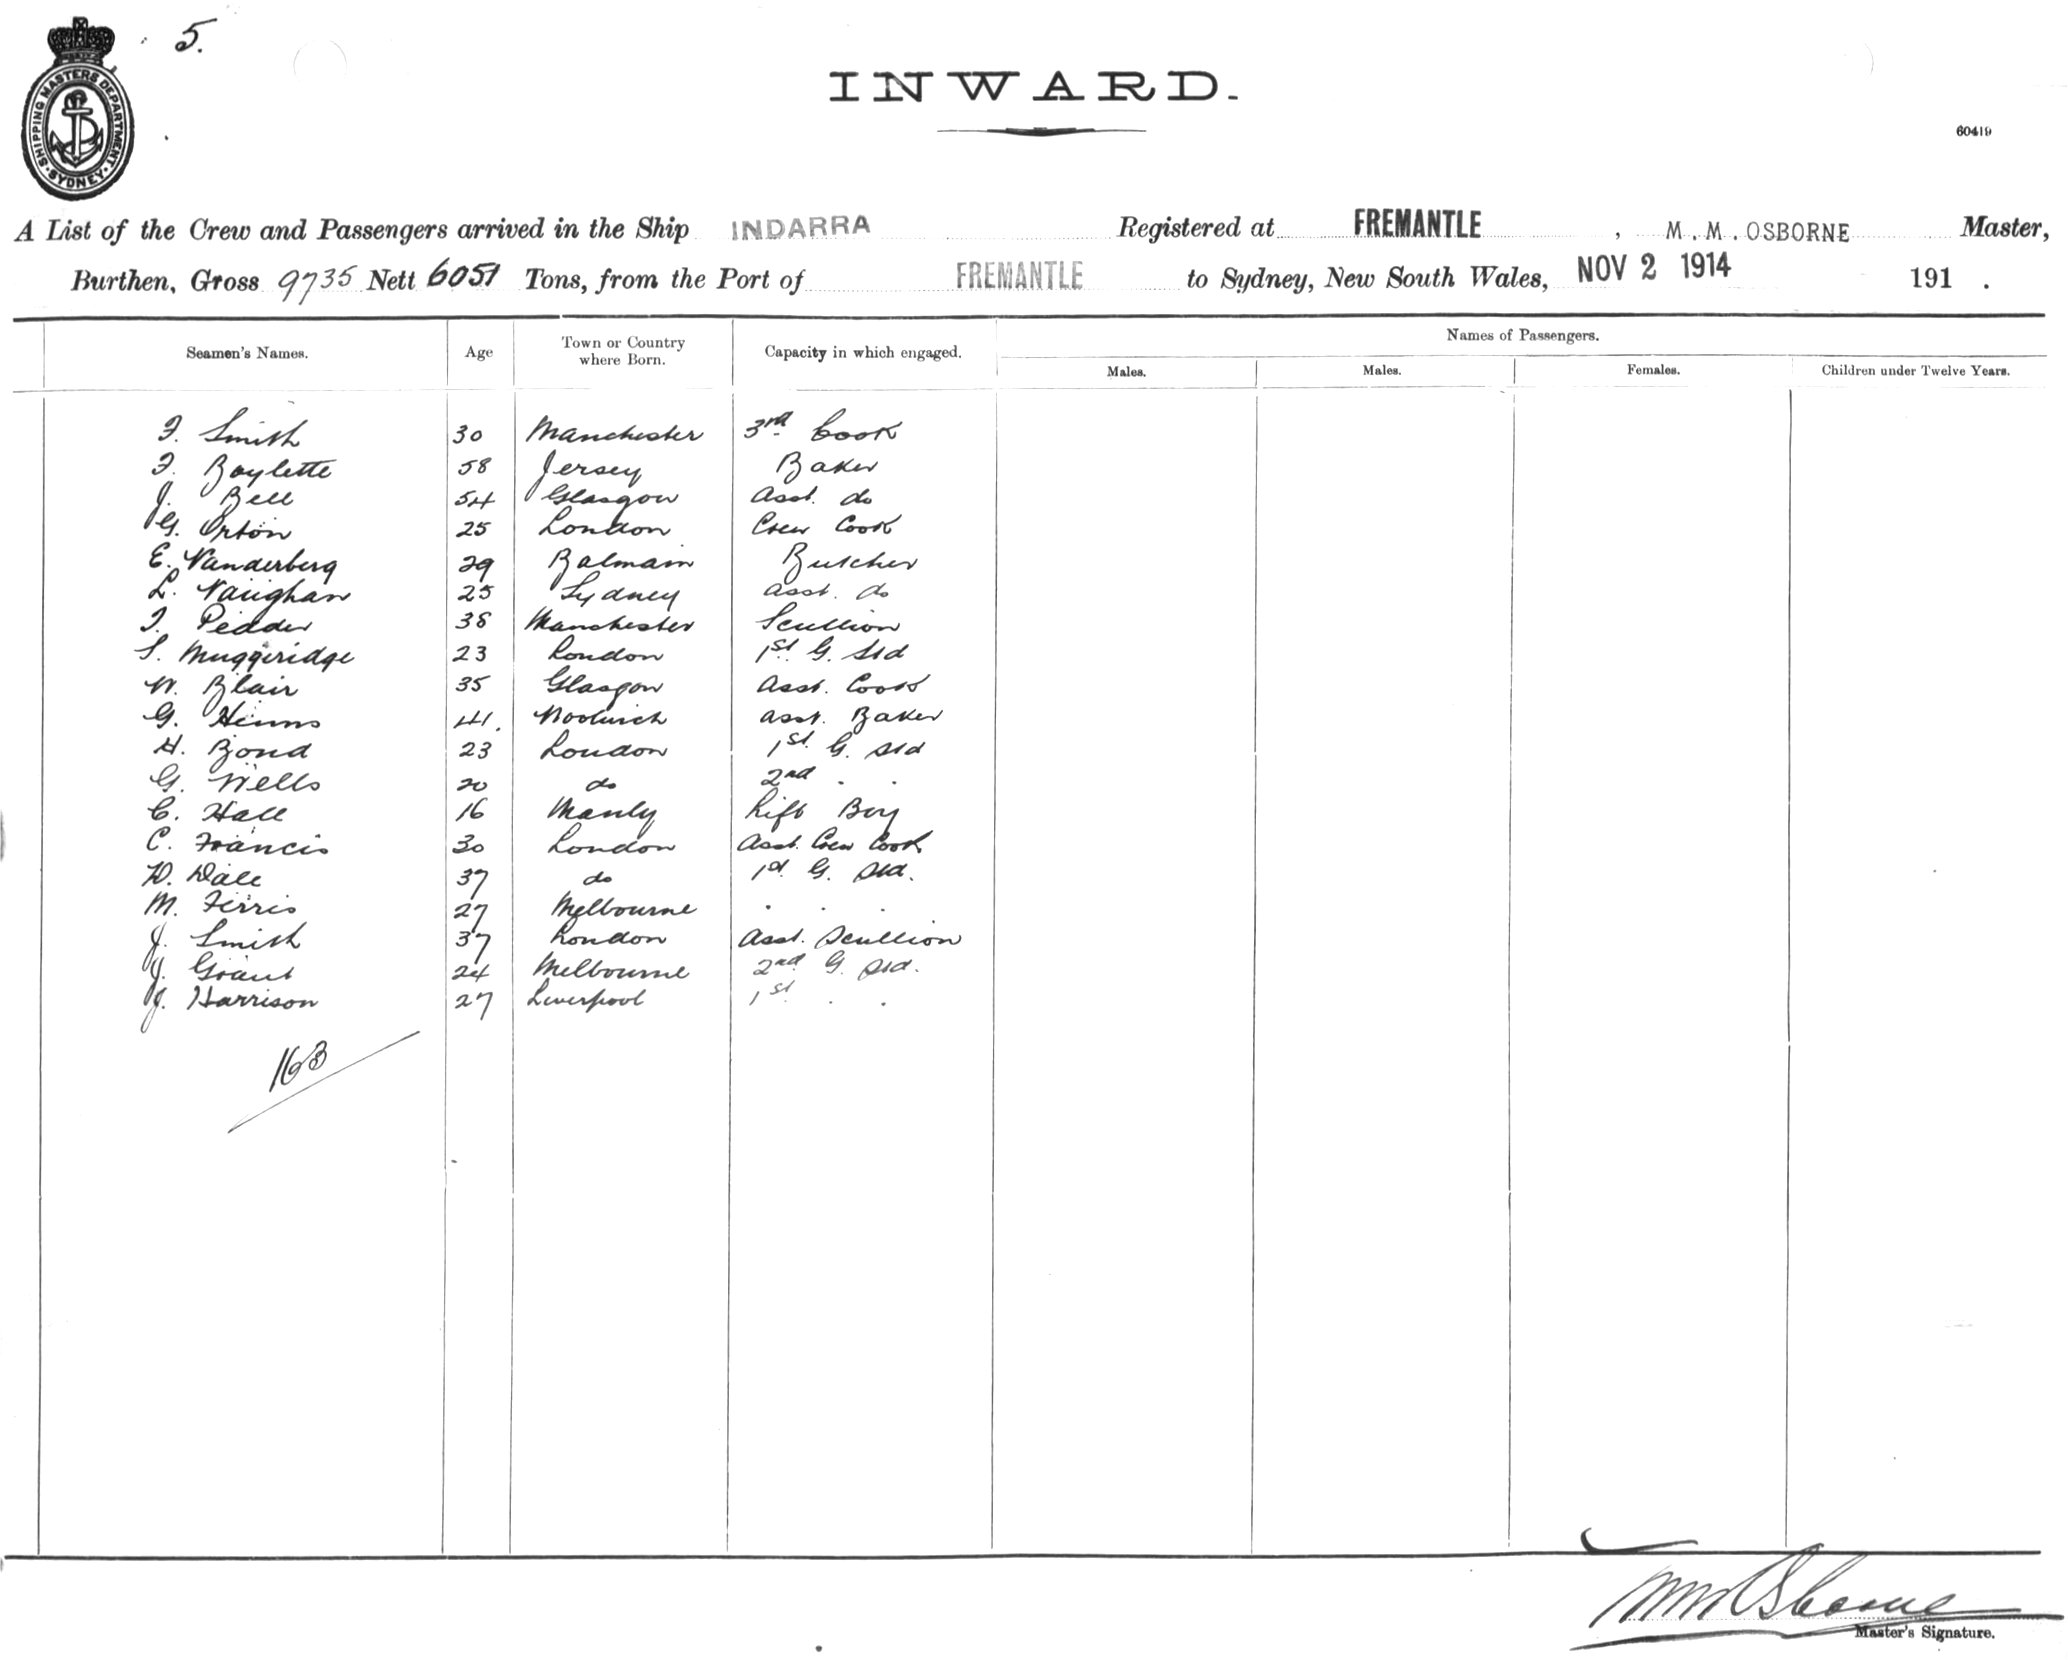 5.
SHIPPING MASTERS DEPARTMENT
SYDNEY
INWARD.
60419
A List of the Crew and Passengers arrived in the Ship INDARRA Registered at FREMANTLE, M.M.OSBORNE Master,
Burthen, Gross 9735 Nett 6051 Tons, from the Port of FREMANTLE to Sydney, New South Wales, NOV 2 1914 191 .
Seamen's Names. Age Town or Country where Born. Capacity in which engaged. Names of Passengers.
Males. Males. Females. Children under Twelve Years.
F. Smith 30 Manchester 3rd Cook
F. Baylette 58 Jersey Baker
J. Bell 54 Glasgow Asst. do
G. Orton 25 London Crew Cook
E. Vanderberg 29 Balmain Butcher
L. Vaughan 25 Sydney Asst. do
F. Pedder 38 Manchester Scullion
S. Muggeridge 23 London 1st G. Std
W. Blair 35 Glasgow Asst. Cook
G. Hinns 41. Woolwich Asst. Baker
H. Bond 23 London 1st G. Std
G. Wells 20 do 2nd . .
C. Hall 16 Manly Lift Boy
C. Francis 30 London Asst. Crew Cook
D. Dale 37 do 1st G. Std.
M. Ferris 27 Melbourne . . .
J. Smith 37 London Asst. Scullion
J. Grant 24 Melbourne 2nd G. Std.
J. Harrison 27 Liverpool 1st . .
163
MMOsborne
Master's Signature.